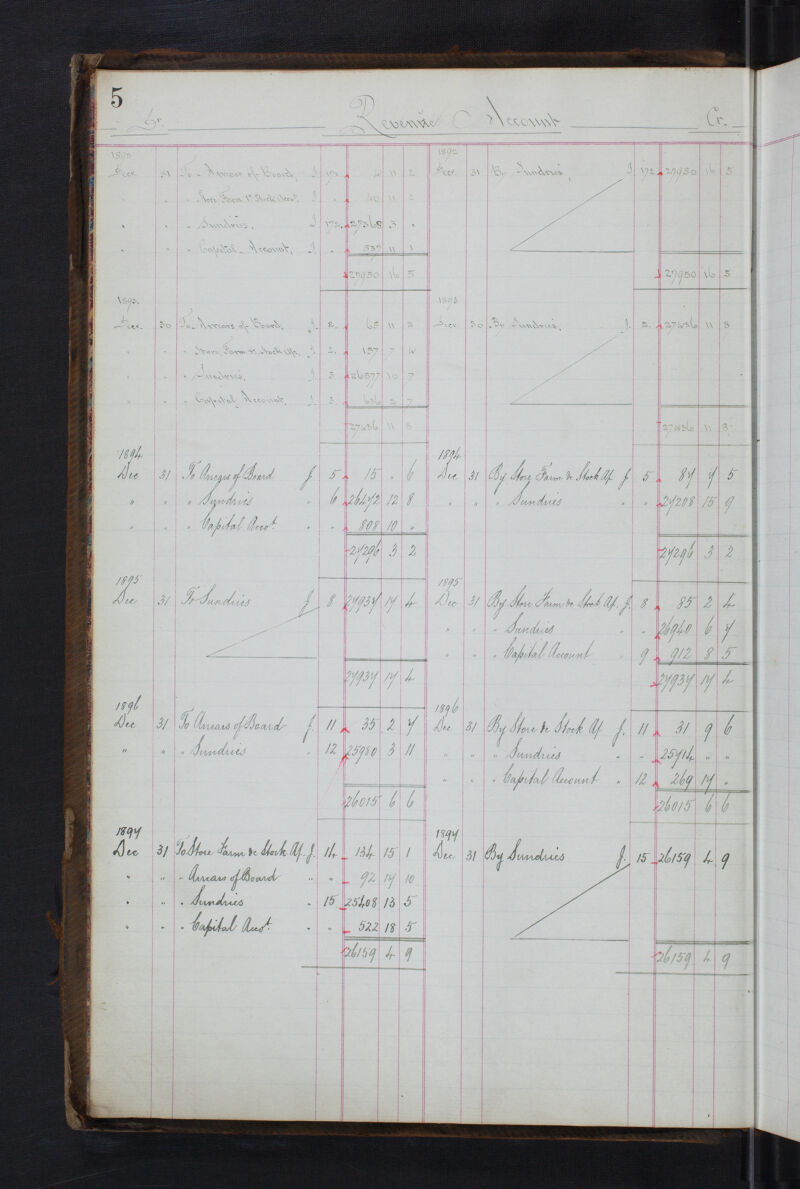 5
Dr. Revenue Account Cr.
1892 1892
Decr. 31 To Arrears of Board, J. 172 4 11 2 Decr. 31 By Sundries, J. 172 27950 16 5
" " " Store Farm & Stock Acct. J. " 40 11 2
" " " Sundries, J. 172 27368 3 "
" " " Capital Account, J. " 537 11 1
27950 16 5 27950 16 5
1893 1893
Decr. 30 To Arrears of Board, J. 2 65 11 2 Decr. 30 By Sundries, J. 2 27436 11 8
" " " Store Farm & Stock A/c, J. 2 157 7 4
" " " Sundries, J. 3 26577 10 7
" " " Capital Account, J. 3 636 2 7
27436 11 8 27436 11 8
1894 1894
Dec 31 To Arrears of Board J 5 15 " 6 Dec 31 By Store Farm & Stock A/c J 5 87 7 5
" " " Sundries " 6 26472 12 8 " " " Sundries " " 27208 15 9
" " " Capital Acct. " " 808 10 "
27296 3 2 27296 3 2
1895 1895
Dec 31 To Sundries J 8 27937 17 4 Dec 31 By Store Farm & Stock A/c J. 8 85 2 4
" " " Sundries " " 26940 6 7
" " " Capital Account 9 912 8 5
27937 17 4 27937 17 4
1896 1896
Dec 31 To Arrears of Board J. 11 35 2 7 Dec 31 By Store & Stock A/c J. 11 31 9 6
" " " Sundries " 12 25980 3 11 " " " Sundries " " 25714 " "
" " " Capital Account " 12 269 17 "
26015 6 6 26015 6 6
1897 1897
Dec 31 To Store Farm & Stock A/c J. 14 134 15 1 Dec 31 By Sundries J. 15 26159 4 9
" " " Arrears of Board " " 92 17 10
" " " Sundries " 15 25408 13 5
" " " Capital Acct. " " 522 18 5
26159 4 9 26159 4 9